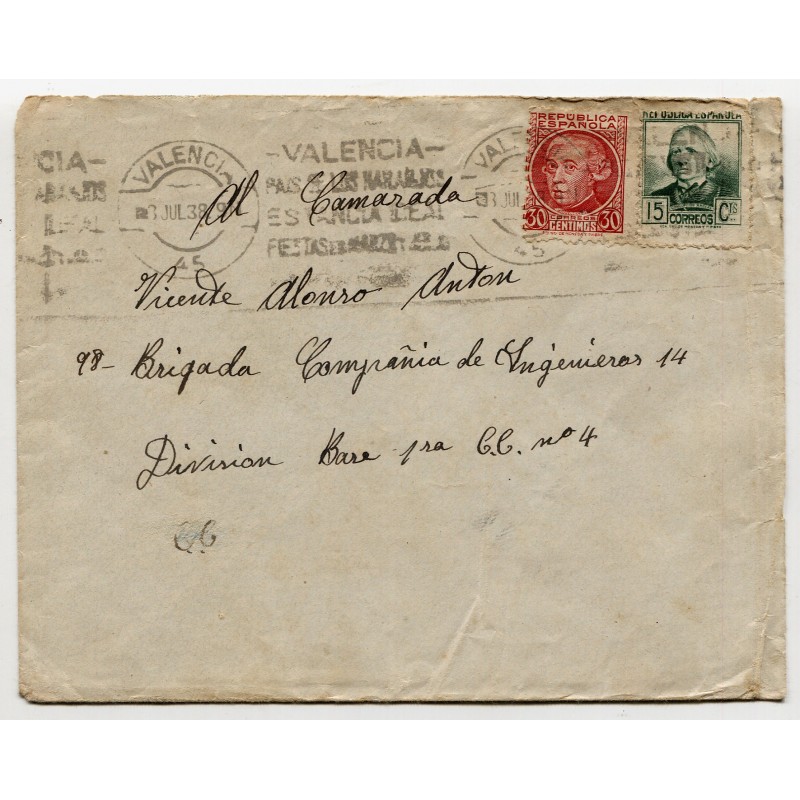 CIA- VALENCIA -VALENCIA- VALE REPÚBLICA ESPAÑOLA REPÚBLICA ESPAÑOLA
PAIS DE LOS NARANJOS
3 JUL 38 ESTANCIA IDEAL 3 JUL
FIESTAS EN MARZO Y JULIO
45 45
30 CORREOS 30
CENTIMOS
15 CTS
CORREOS
Al Camarada
Vicente Alonso Anton
98- Brigada Compañia de Ingenieros 14
Division Base 1ra C.C. nº 4
CC